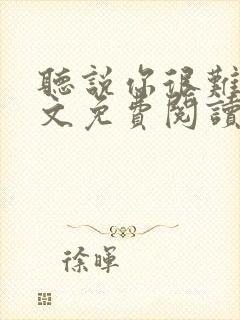 聽說你很難
文免費閱讀
徐暉